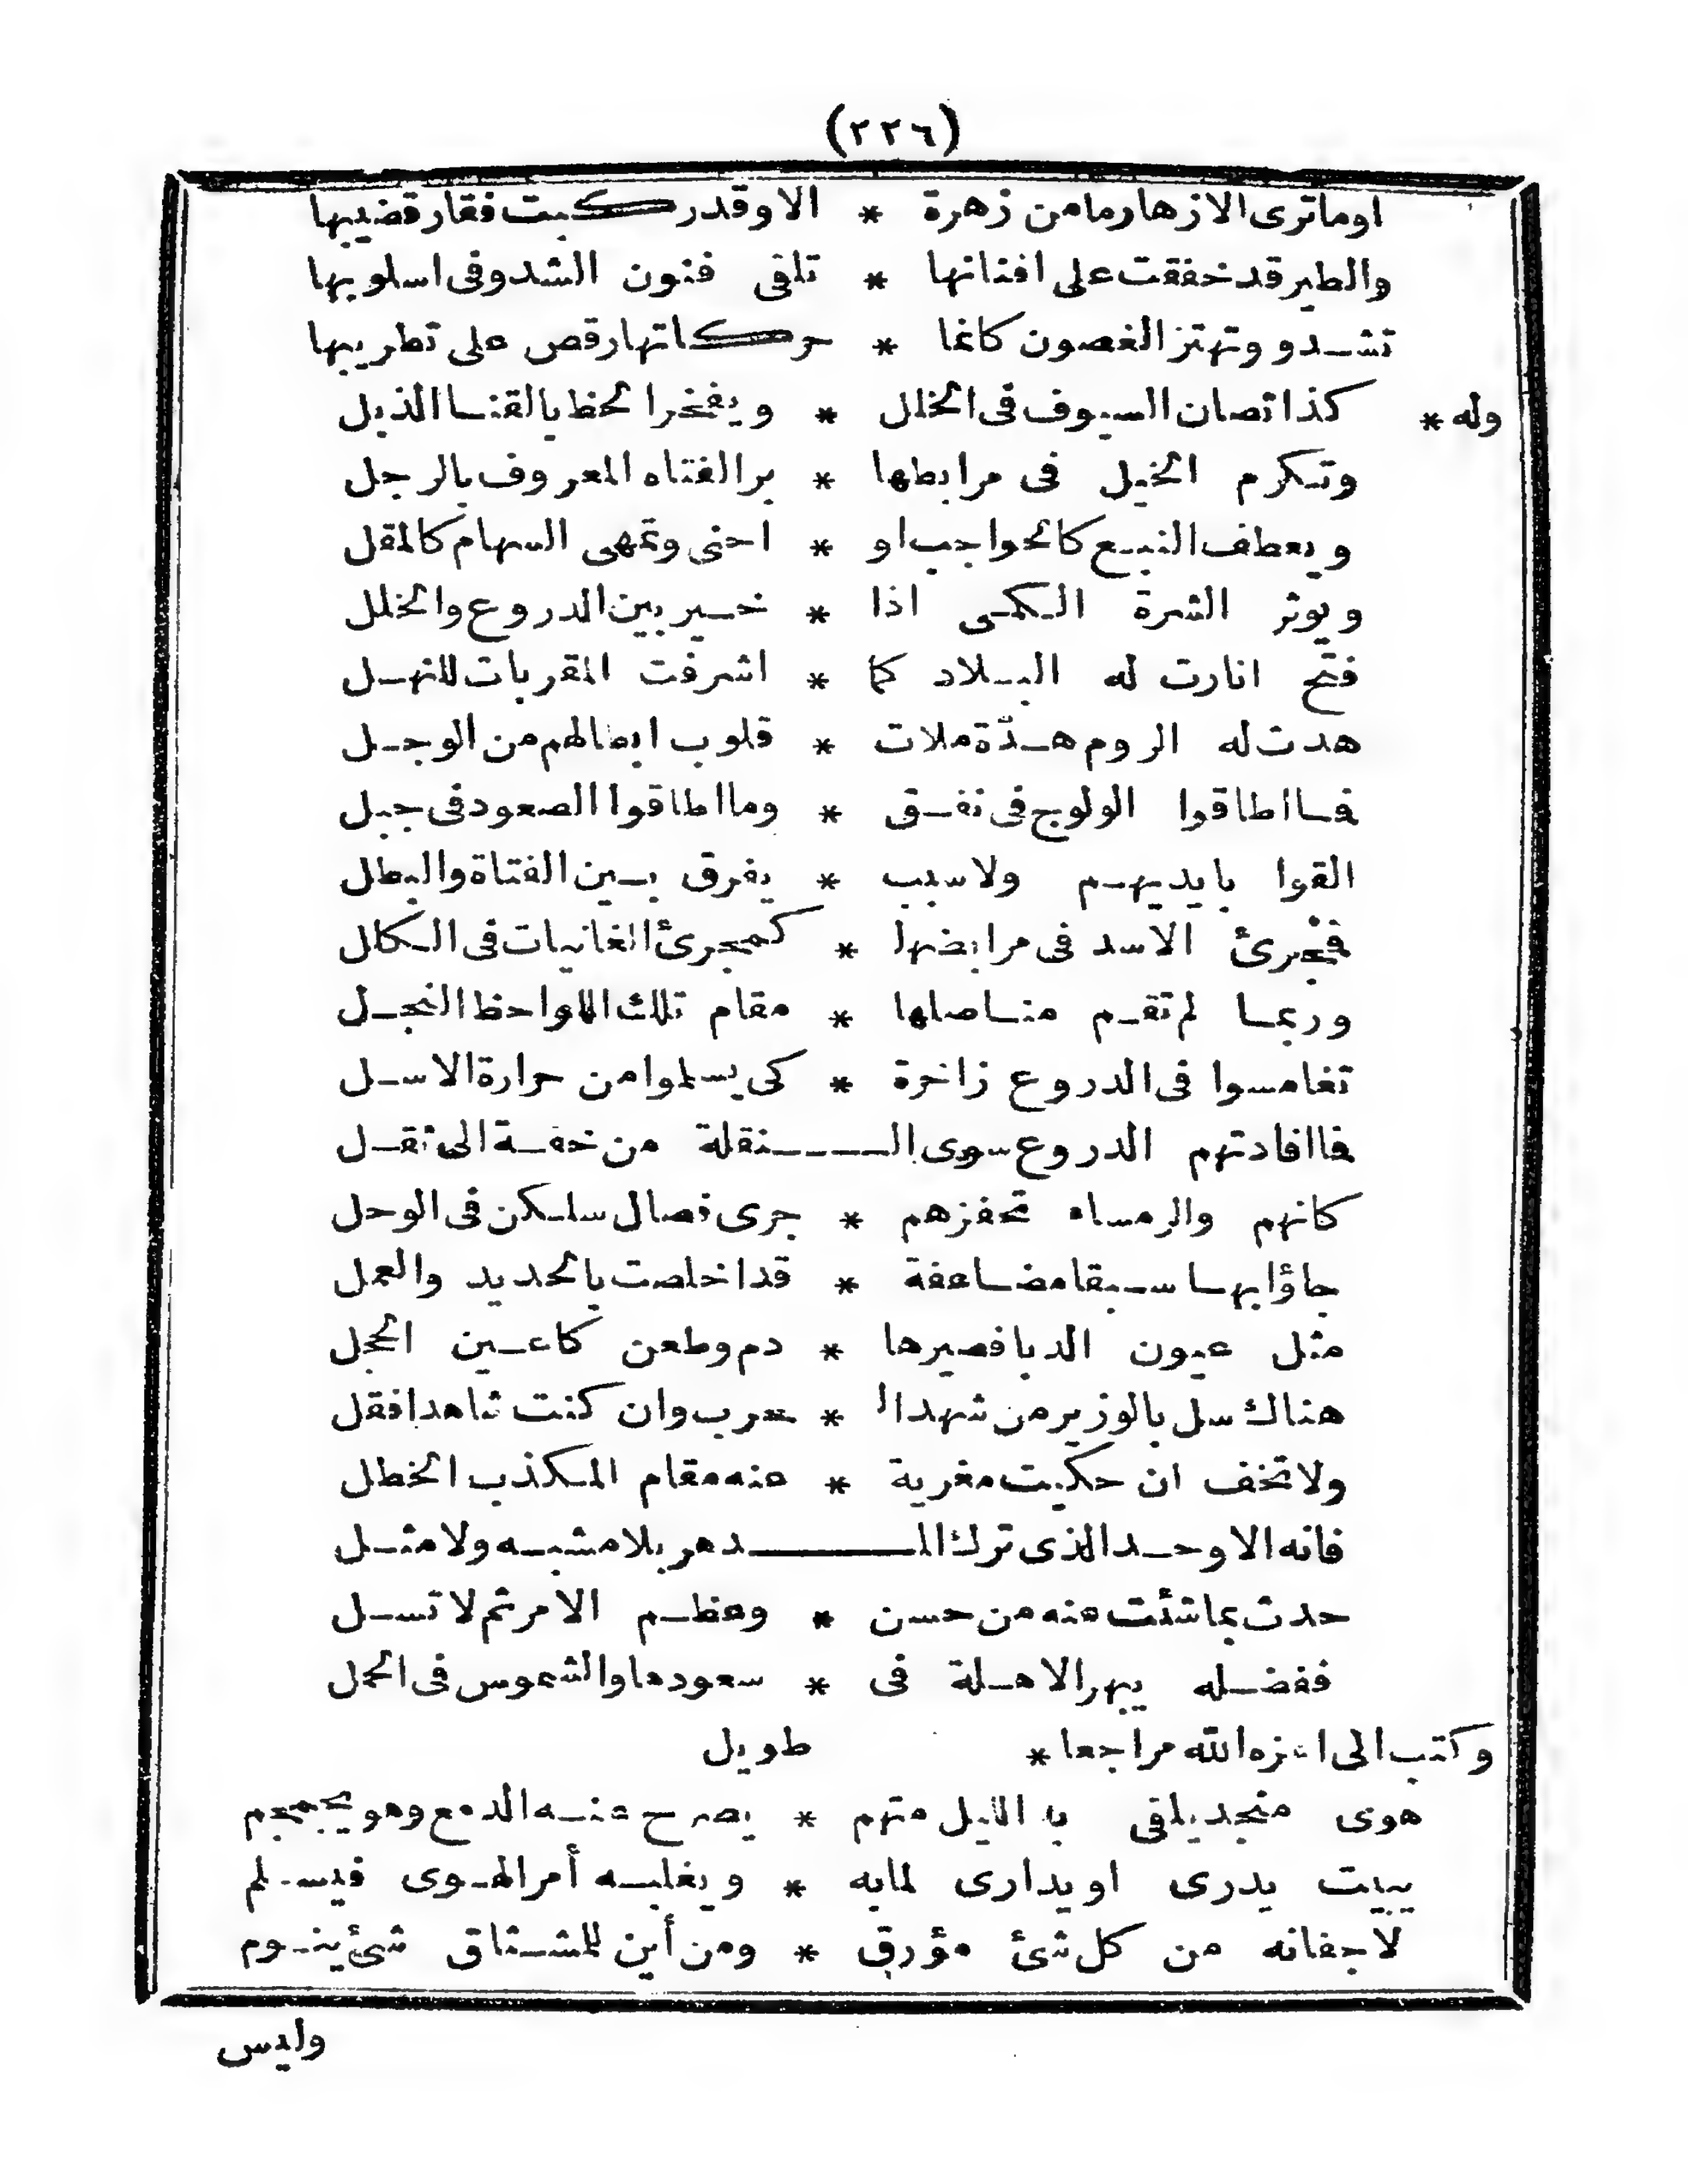 (٢٢٦)
اوماترى الازهار مامن زهرة * الا وقد ركبت فقار قضيبها
والطير قد خفقت على افنانها * تلقى فنون الشدو فى اسلوبها
تشدو وتهتز الغصون كانما * حركاتها رقص على تطريبها
وله * كذا تصان السيوف فى الخلل * ويفخر الخط بالقنا الذبل
وتكرم الخيل فى مرابطها * بر الفتاه المعروف بالرجل
ويعطف النبع كالحواجب او * احنى وتمهى السهام كالمقل
ويوثر الشرة الكمى اذا * خير بين الدروع والخلل
فتح انارت له البلاد كما * اشرفت المقربات للنهل
هدت له الروم هدّة ملات * قلوب ابطالهم من الوجل
فما اطاقوا الولوج فى نفق * وما اطاقوا الصعود فى جبل
القوا بايديهم ولا سبب * يفرق بين الفتاة والبطل
فمجرئ الاسد فى مرابضها * كمجرئ الغانيات فى الكلل
وربما لم تقم مناصلها * مقام تلك اللواحظ النجل
تغامسوا فى الدروع زاخرة * كى يسلموا من حرارة الاسل
فا افادتهم الدروع سوى النقلة من خفة الى ثقل
كانهم والرماه تحفزهم * جرى نصال سلكن فى الوحل
جاؤا بها سبقا مضاعفة * قد اخلصت بالحديد والعمل
مثل عيون الدبا فصيرها * دم وطعن كاعين الحجل
هناك سل بالوزير من شهد ال * حرب وان كنت شاهدا فقل
ولا تخف ان حكيت مغربة * عنه مقام المكذب الخطل
فانه الاوحد الذى ترك الدهر بلا مشبه ولا مثل
حدث بما شئت عنه من حسن * وعظم الامر ثم لا تسل
ففضله يبهر الاهلة فى * سعودها والشموس فى الحمل
وكتب الى اعزه الله مراجعا * طويل
هوى منجد يلقى به الليل متهم * يصرح عنه الدمع وهو يجمجم
يبيت يدرى او يدارى لمابه * ويغلبه أمر الهوى فيسلم
لاجفانه من كل شئ مؤرق * ومن أين للمشتاق شئ ينوم
وليس